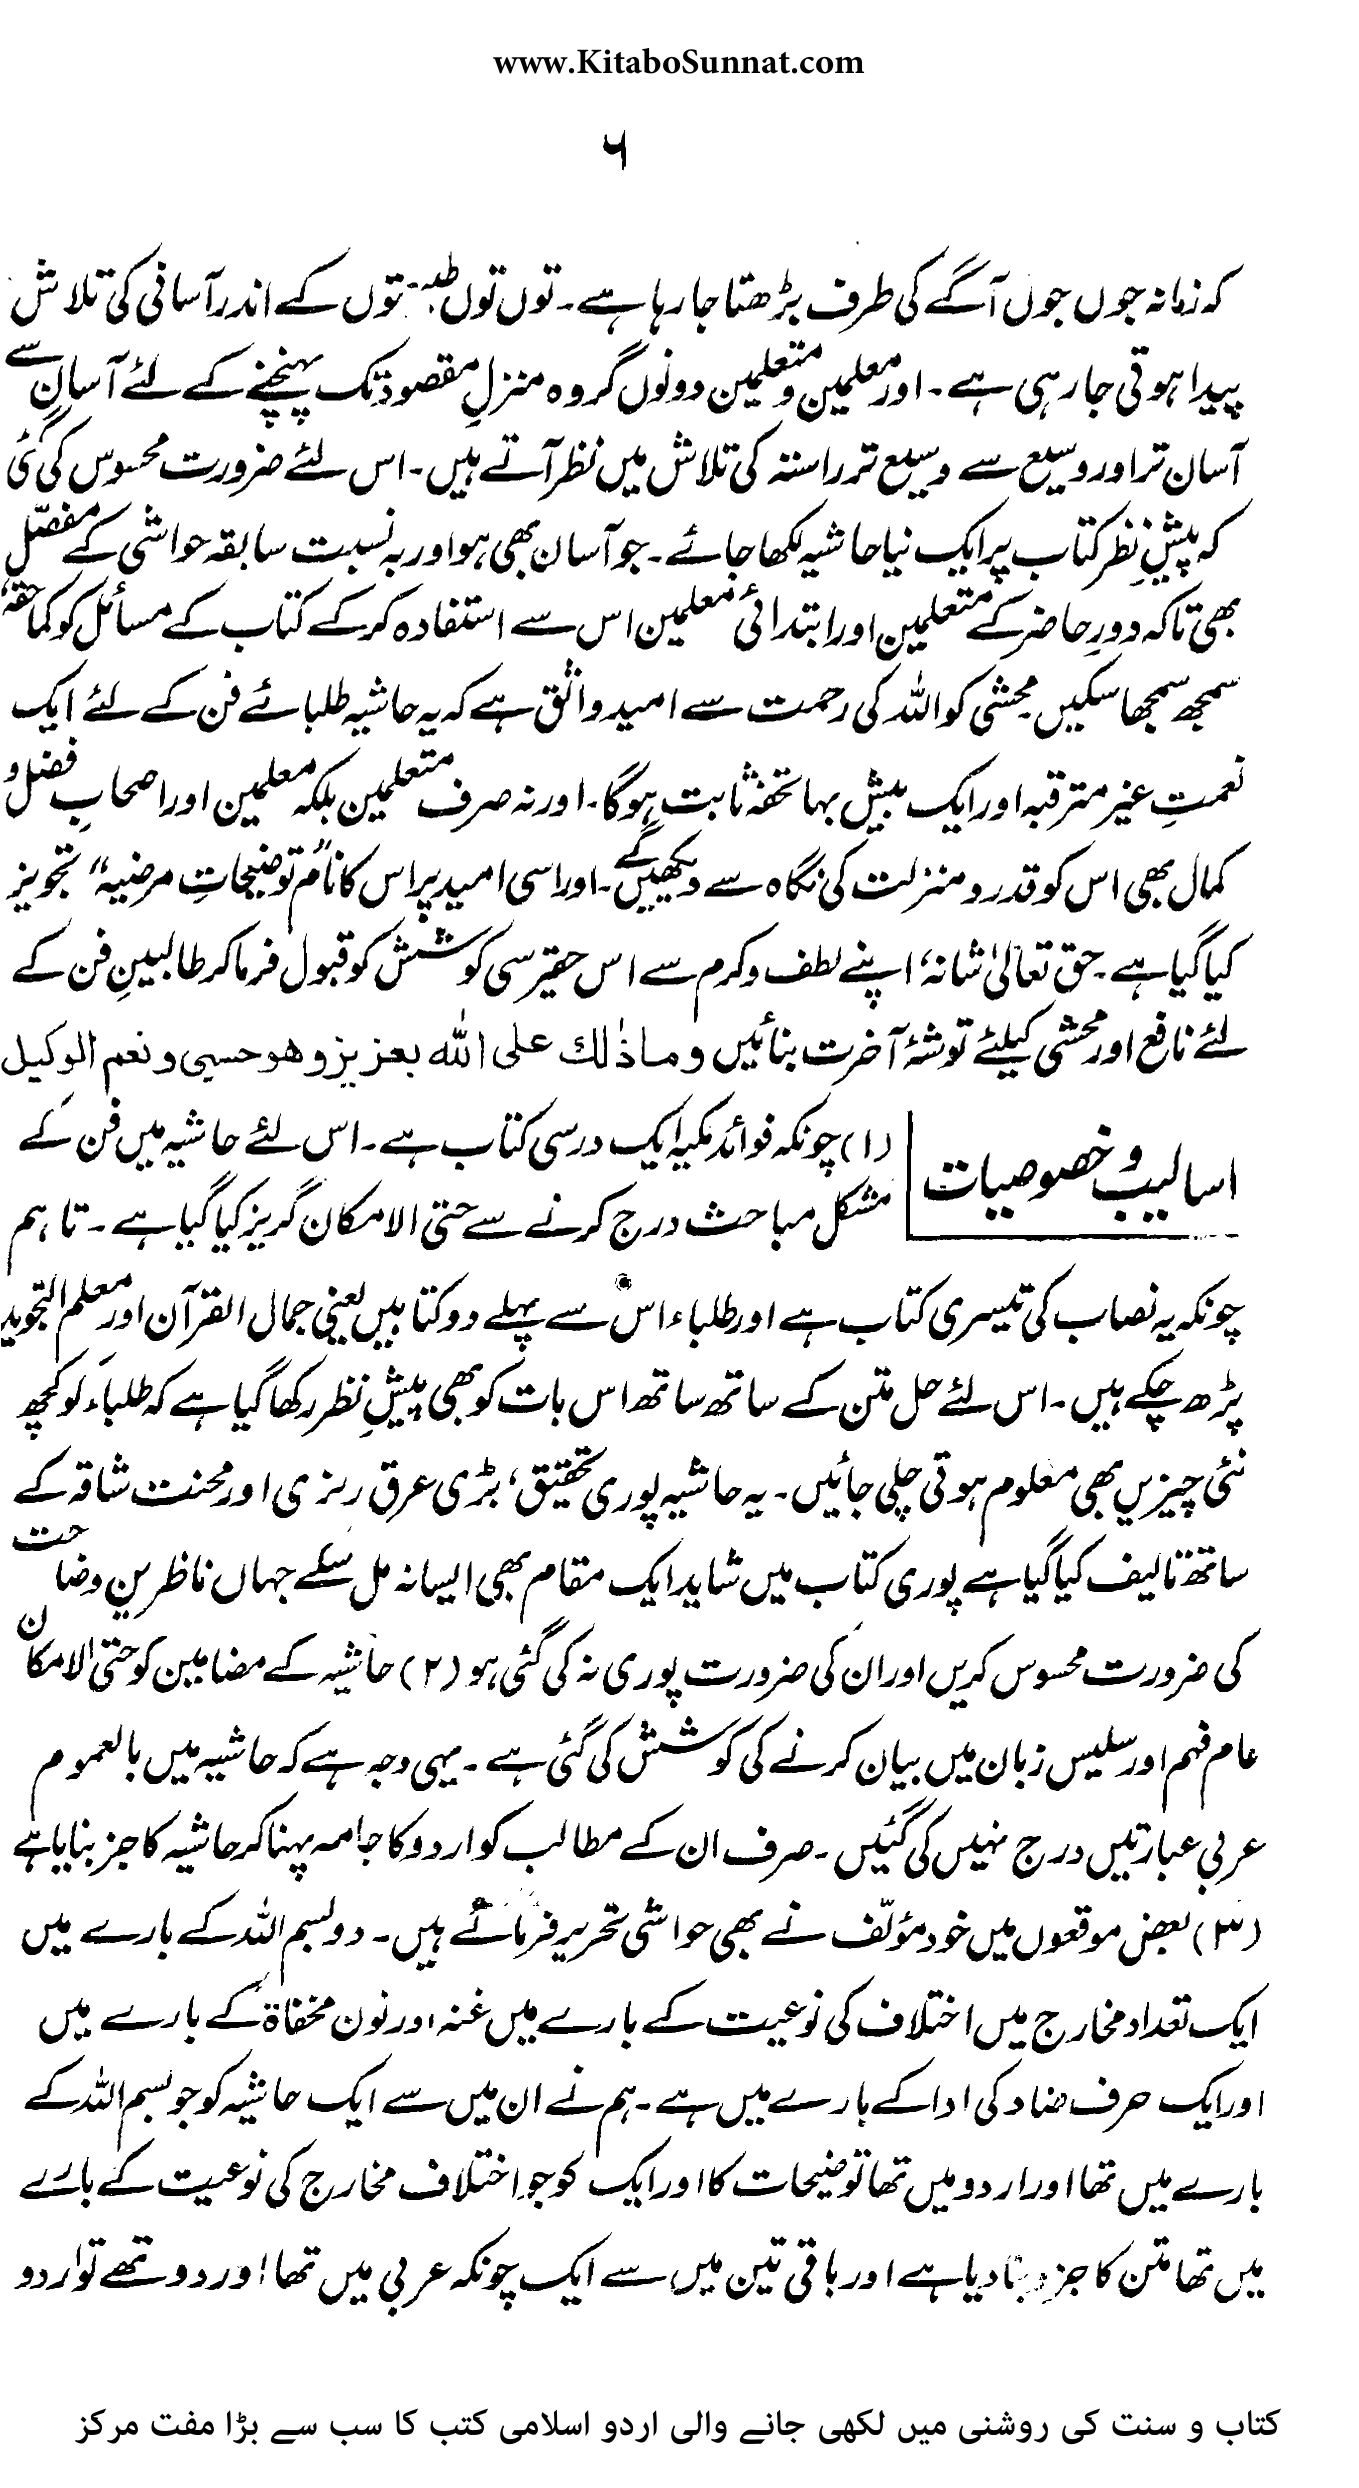 www.KitaboSunnat.com
۶
کہ زمانہ جوں جوں آگے کی طرف بڑھتا جا رہا ہے۔ توں توں طبیعتوں کے اندر آسانی کی تلاش
پیدا ہوتی جا رہی ہے۔ اور معلمین و متعلمین دونوں گروہ منزلِ مقصود تک پہنچنے کے لئے آسان سے
آسان تر اور وسیع سے وسیع تر راستہ کی تلاش میں نظر آتے ہیں۔ اس لئے ضرورت محسوس کی گئی
کہ پیشِ نظر کتاب پر ایک نیا حاشیہ لکھا جائے۔ جو آسان بھی ہو اور بہ نسبت سابقہ حواشی کے مفصّل
بھی تاکہ دورِ حاضر کے متعلمین اور ابتدائی معلمین اس سے استفادہ کر کے کتاب کے مسائل کو کماحقہٗ
سمجھ سمجھا سکیں۔ محشی کو اللہ کی رحمت سے امید واثق ہے کہ یہ حاشیہ طلبائے فن کے لئے ایک
نعمتِ غیر مترقبہ اور ایک بیش بہا تحفہ ثابت ہوگا۔ اور نہ صرف متعلمین بلکہ معلمین اور اصحابِ فضل و
کمال بھی اس کو قدر و منزلت کی نگاہ سے دیکھیں گے۔ اور اسی امید پر اس کا نام "توضیحاتِ مرضیہ" تجویز
کیا گیا ہے۔ حق تعالیٰ شانہٗ اپنے لطف و کرم سے اس حقیر سی کوشش کو قبول فرما کر طالبینِ فن کے
لئے نافع اور محشی کیلئے توشۂ آخرت بنائیں وماذٰلك علی اللّٰه بعزیز وهو حسبی و نعم الوکیل
اسالیب و خصوصیات
(۱) چونکہ فوائد مکیہ ایک درسی کتاب ہے۔ اس لئے حاشیہ میں فن کے
مشکل مباحث درج کرنے سے حتی الامکان گریز کیا گیا ہے۔ تاہم
چونکہ یہ نصاب کی تیسری کتاب ہے اور طلباء اس سے پہلے دو کتابیں یعنی جمال القرآن اور معلم التجوید
پڑھ چکے ہیں۔ اس لئے حل متن کے ساتھ ساتھ اس بات کو بھی پیشِ نظر رکھا گیا ہے کہ طلباء کو کچھ
نئی چیزیں بھی معلوم ہوتی چلی جائیں۔ یہ حاشیہ پوری تحقیق، بڑی عرق ریزی اور محنت شاقہ کے
ساتھ تالیف کیا گیا ہے پوری کتاب میں شاید ایک مقام بھی ایسا نہ مل سکے جہاں ناظرین وضاحت
کی ضرورت محسوس کریں اور ان کی ضرورت پوری نہ کی گئی ہو (۲) حاشیہ کے مضامین کو حتی الامکان
عام فہم اور سلیس زبان میں بیان کرنے کی کوشش کی گئی ہے۔ یہی وجہ ہے کہ حاشیہ میں بالعموم
عربی عبارتیں درج نہیں کی گئیں۔ صرف ان کے مطالب کو اردو کا جامہ پہنا کر حاشیہ کا جز بنایا ہے
(۳) بعض موقعوں میں خود مؤلّف نے بھی حواشی تحریر فرمائے ہیں۔ دو بسم اللہ کے بارے میں
ایک تعداد مخارج میں اختلاف کی نوعیت کے بارے میں غنہ اور نون مخفاۃ کے بارے میں
اور ایک حرف ضاد کی ادا کے بارے میں ہے۔ ہم نے ان میں سے ایک حاشیہ کو جو بسم اللہ کے
بارے میں تھا اور اردو میں تھا توضیحات کا اور ایک کو جو اختلاف مخارج کی نوعیت کے بارے
میں تھا متن کا جزو بنا دیا ہے اور باقی تین میں سے ایک چونکہ عربی میں تھا اور دو تھے تو اردو
کتاب و سنت کی روشنی میں لکھی جانے والی اردو اسلامی کتب کا سب سے بڑا مفت مرکز